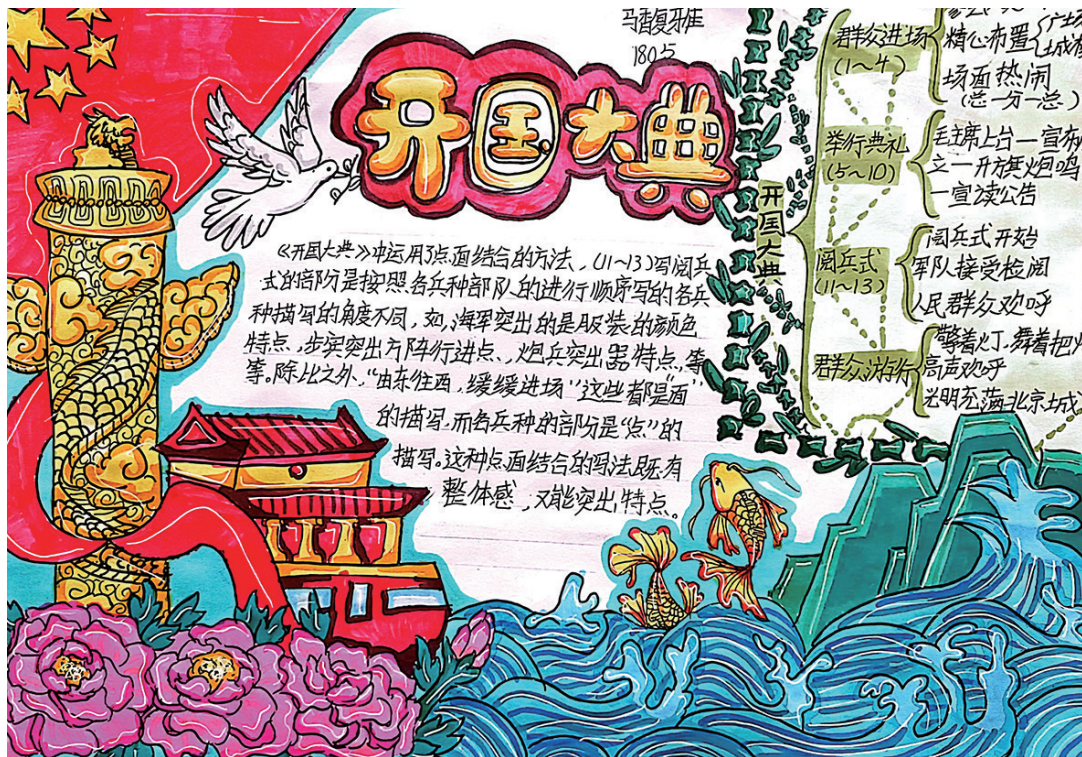 1805
开国大典
《开国大典》冲运用了点面结合的方法，(11~13)写阅兵
式的部分是按照各兵种部队的进行顺序写的各兵
种描写的角度不同，如，海军突出的是服装的颜色
特点，步实突出方阵行进点、，炮兵突出器特点，等
等。除比之外，“由东往西，缓缓进场”这些都是“面”
的描写，而各兵种的部分是“点”的
描写。这种点面结合的写法既有
整体感，又能突出特点。
开国大典
群众进场
(1~4)
精心布置
场面热闹
(总一分一总)
举行典礼
(5~10)
毛主席上台一宣布
立一升旗炮鸣
一宣读公告
阅兵式
(11~13)
阅兵式开始
军队接受检阅
人民群众欢呼
群众游行
擎着灯，舞着把火
高声欢呼
光明充满北京城